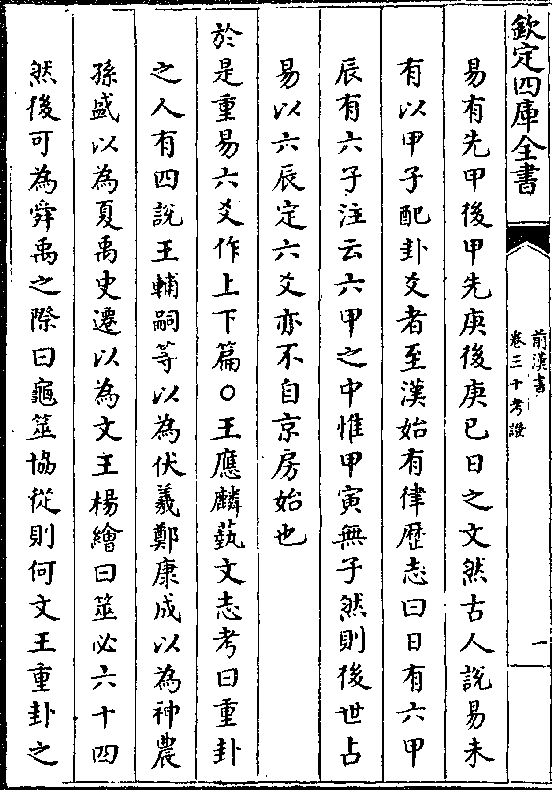 欽定四庫全書
前漢書
卷三十考證
一
易有先甲後甲先庚後庚已日之文然古人說易未
有以甲子配卦爻者至漢始有律歴志曰日有六甲
辰有六子注云六甲之中惟甲寅無子然則後世占
易以六辰定六爻亦不自京房始也
於是重易六爻作上下篇○王應麟藝文志考曰重卦
之人有四說王輔嗣等以為伏羲鄭康成以為神農
孫盛以為夏禹史遷以為文王楊繪曰筮必六十四
然後可為舜禹之際曰龜筮協從則何文王重卦之